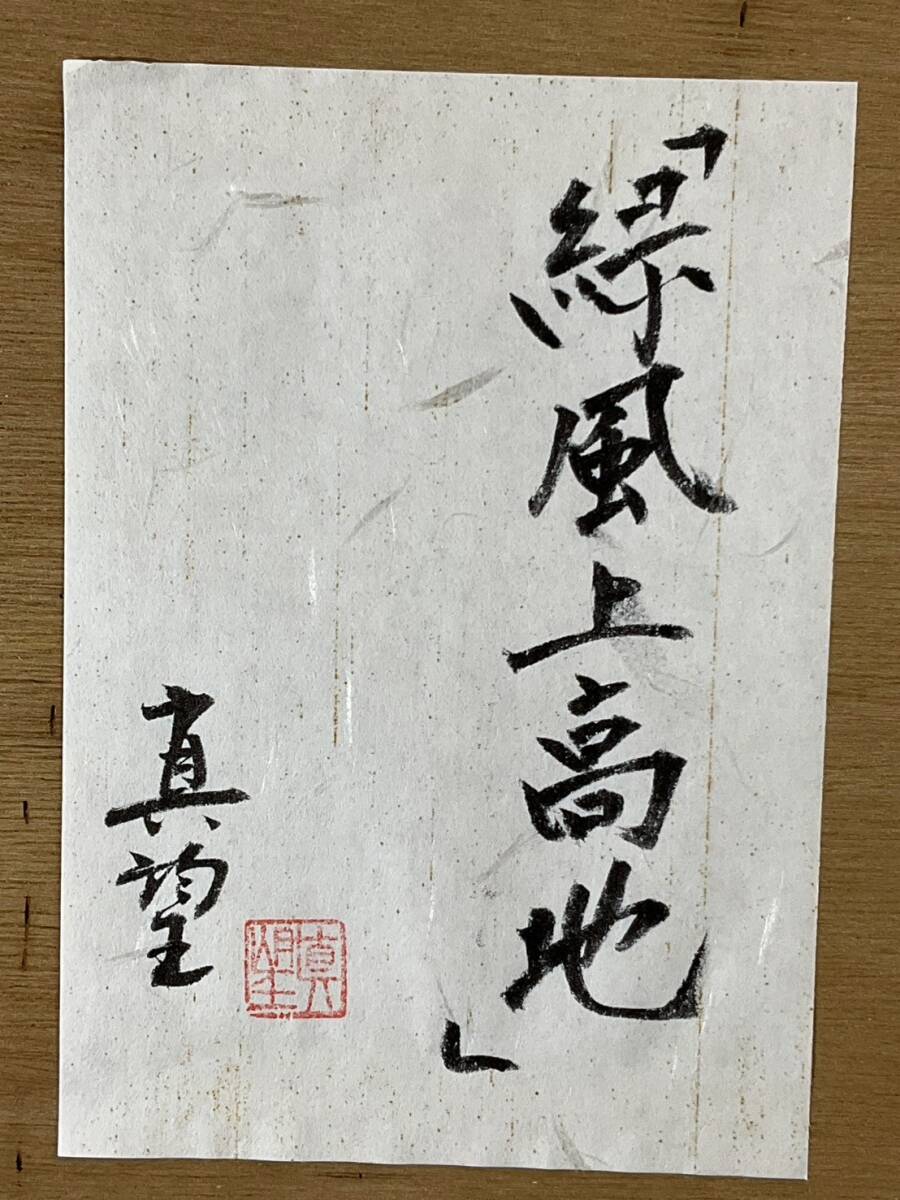 「緑風上高地」
真望
真望